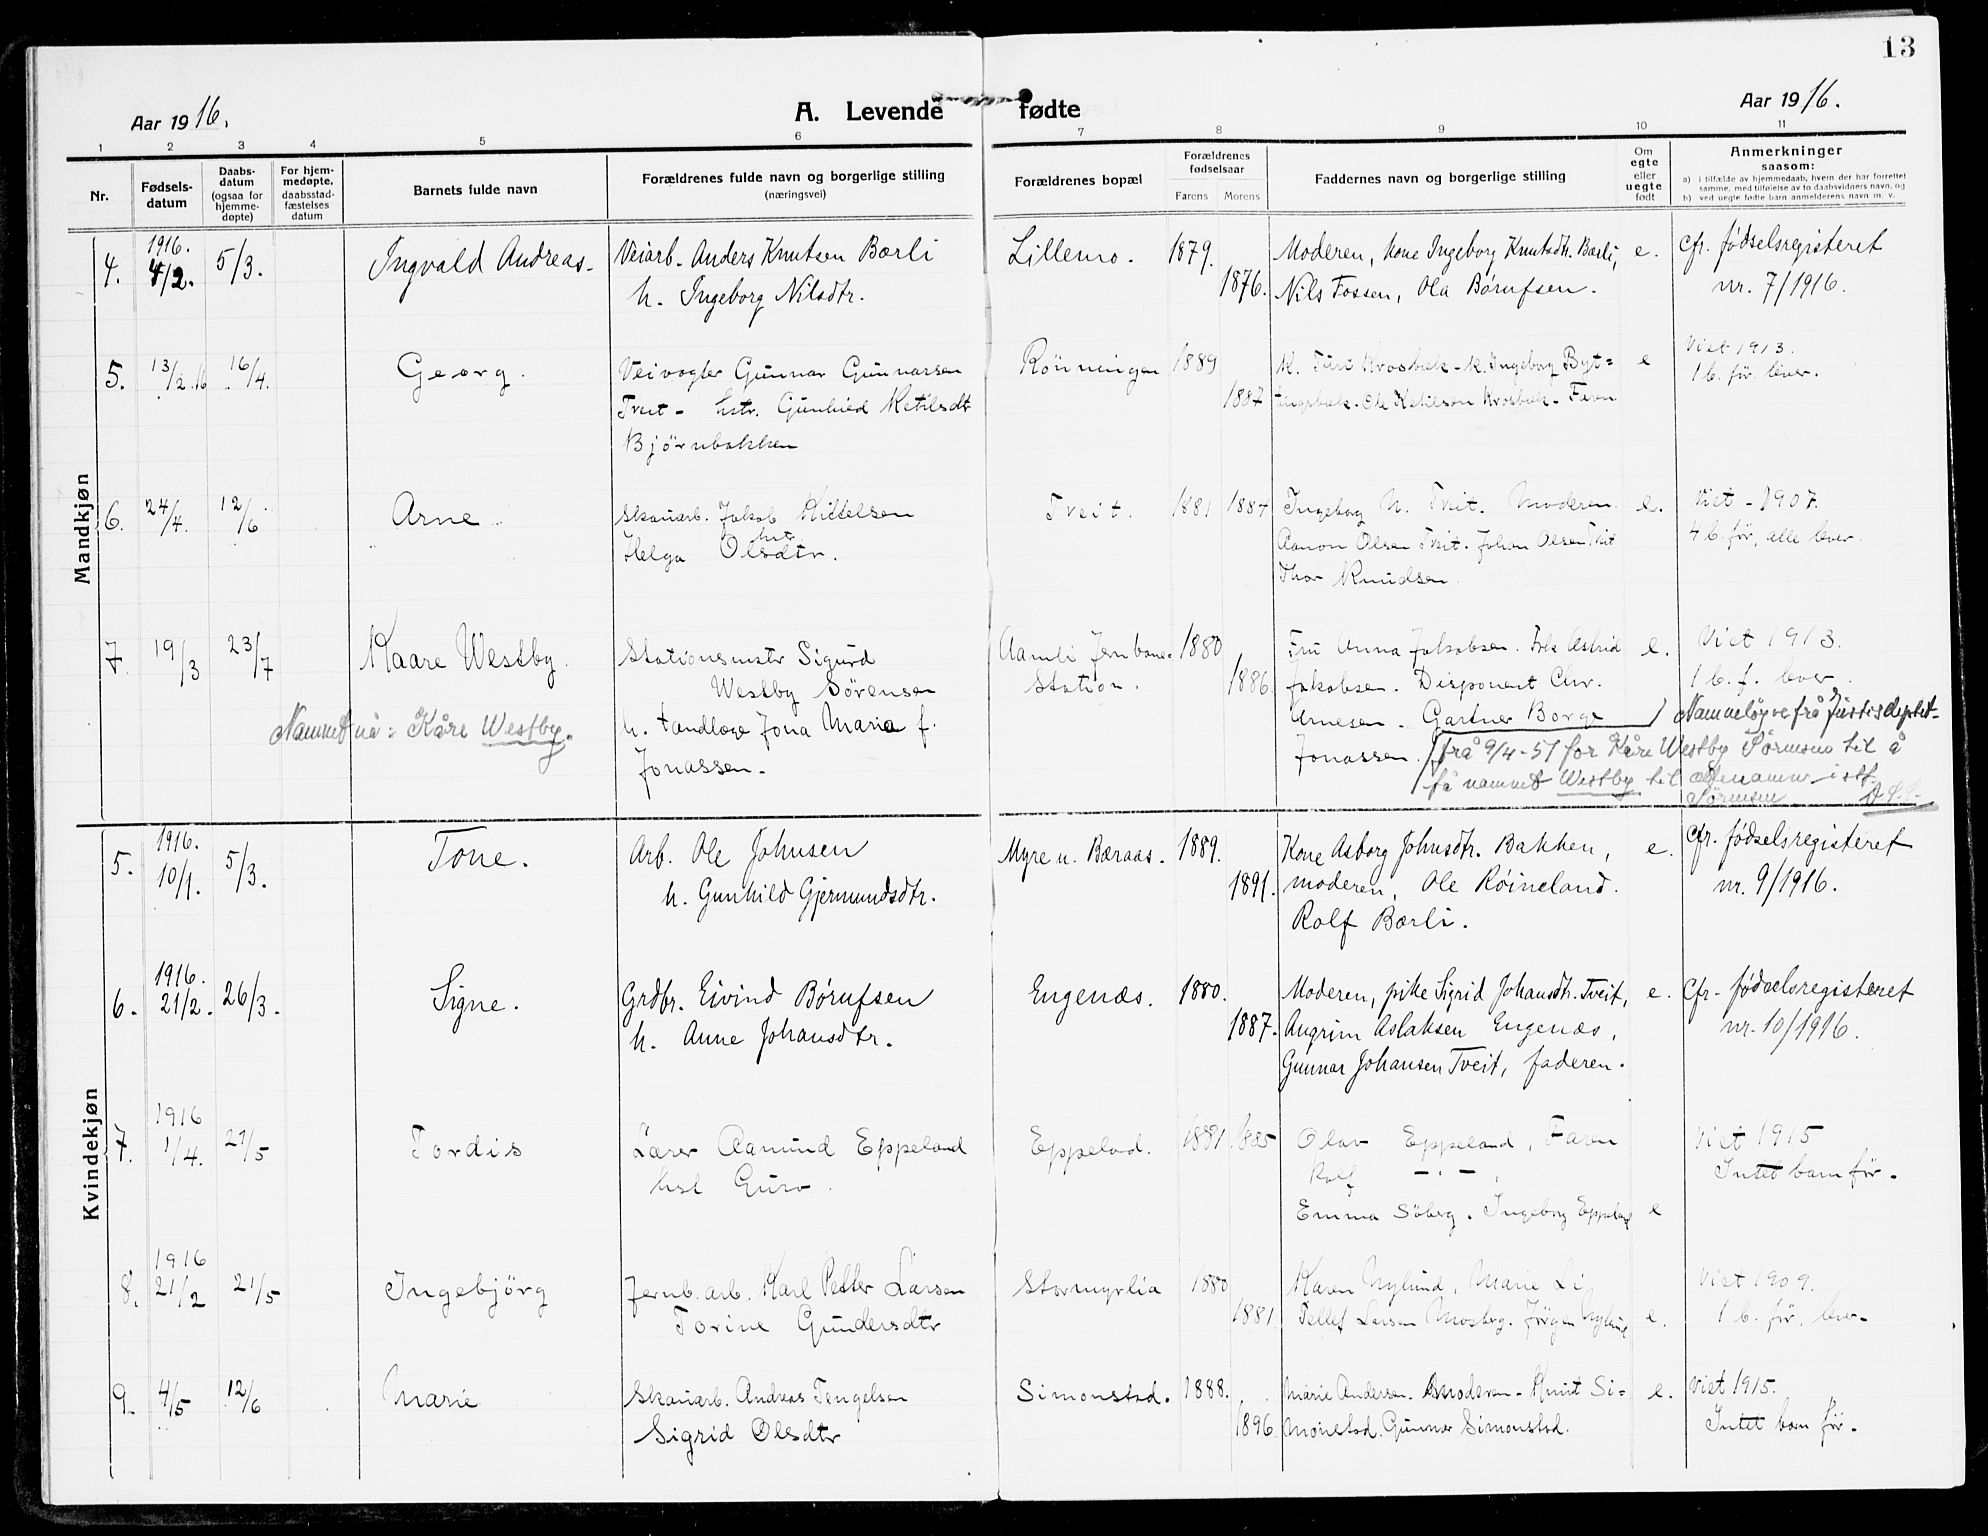 13
Aar 1916.
A. Levende fødte
Aar 1916.
1 2 3 4 5 6 7 8 9 10 11
Nr.
Fødsels-
datum
Daabs-
datum
(ogsaa for
hjemme-
døpte)
For hjem-
medøpte,
daabsstad-
fæstelses
datum
Barnets fulde navn
Forældrenes fulde navn og borgerlige stilling
(næringsvei)
Forældrenes bopæl
Forældrenes
fødselsaar
Farens Morens
Faddernes navn og borgerlige stilling
Om
egte
eller
uegte
født
Anmerkninger
saasom:
a) i tilfælde av hjemmedaab, hvem der har forrettet
samme, med tilføielse av to daabsvidners navn, og
b) ved uegte fødte barn anmelderens navn m. v.
Mandkjøn
4. 1916. 4/2. 5/3. Ingvald Andreas. Veiarb. Anders Knutsen Bærli Lillemo. 1879. Moderen, kone Ingeborg Knutsdtr. Bærli, e. Cfr. fødselsregisteret
h. Ingeborg Nilsdtr. 1876. Nils Fossen, Ola Børufsen. nr. 7/1916.
5. 13/2 16 16/4. Georg. Veivogter Gunnar Gunnarsen Rönningen 1889 K. Turi Krosbæk - k. Ingeborg Byt= e Viet 1913.
Tveit - hstr. Gunhild Ketilsdt 1887 tingsbæk. Ole Ketilson Krosbæk - Faren 1 b. før. lever.
Bjørnbakken
6. 24/4. 12/6 Arne Skauarb. Jakob Kittelsen Tveit. 1881 1884 Ingeborg N. Tveit. Moderen e. Viet - 1907.
hstr
Helga Olsdtr. Aanon Olsen Tveit. Johan Olsen Tveit 4 b. før, alle lever.
Thor Knudsen
7. 19/3 23/7 Kaare Westby. Stationsmstr Sigurd Aamli Jernbane- 1880 Fru Anna Jakobsen. Frk Astrid e. Viet 1913.
Westby Sörensen Station. 1886. Jakobsen. Disponent Chr. 1 b. f. lever.
Namnet nå: Kåre Westby. h. tandlæge Jona Maria f. Arnesen. Gartner Borge Namneløyve frå Justisdeptet-
Jonassen. Jonassen. frå 9/4-51 for Kåre Westby Sörensen til å
få namnet Westby til ættenamn i stf.
Sörensen
Kvindekjøn
5. 1916. 10/1. 5/3. Tone. Arb. Ole Johnsen Myre u. Bæraas. 1889. Kone Asborg Johnsdtr. Bakken, e. Cfr. fødselsregisteret
h. Gunhild Gjermundsdtr. 1891. moderen, Ole Røineland. nr. 9/1916.
Rolf Bærli.
6. 1916. 21/2. 26/3. Signe. Grdbr. Eivind Børufsen Engenæs. 1880. Moderen, pike Sigrid Johansdtr. Tveit, e. Cfr. fødselsregisteret
h. Anne Johansdtr. 1887. Angrim Aslaksen Engenæs, nr. 10/1916.
Gunnar Johansen Tveit, faderen.
7. 1916 1/4. 21/5 Tordis Lærer Aamund Eppeland Eppelad. 1881 1885 Olav Eppeland, Faren Viet 1915
hst Guro. Rolf -"- , Intet barn før.
Emma Söberg. Ingeborg Eppeland e
8. 1916 21/2 21/5 Ingebjörg Jernb. arb. Karl Petter Larsen Stormyrlia 1880 Karen Nylund, Marie Li Viet 1909.
Torine Gundersdtr 1881 Tellef Larsen Mosberg. Jörgen Nylund e. 1 b. før, lever.
9. 4/5 12/6 Marie Skauarb. Andreas Tengelsen Simonstad. 1888. Marie Andersen. Moderen - Knut Si= e. Viet 1915.
Sigrid Olsdtr 1896. monstad. Gunnar Simonstad. Intet barn før.